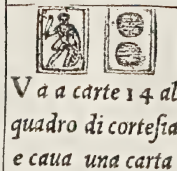 Va a carte 14 al
quadro di cortesia
e caua una carta